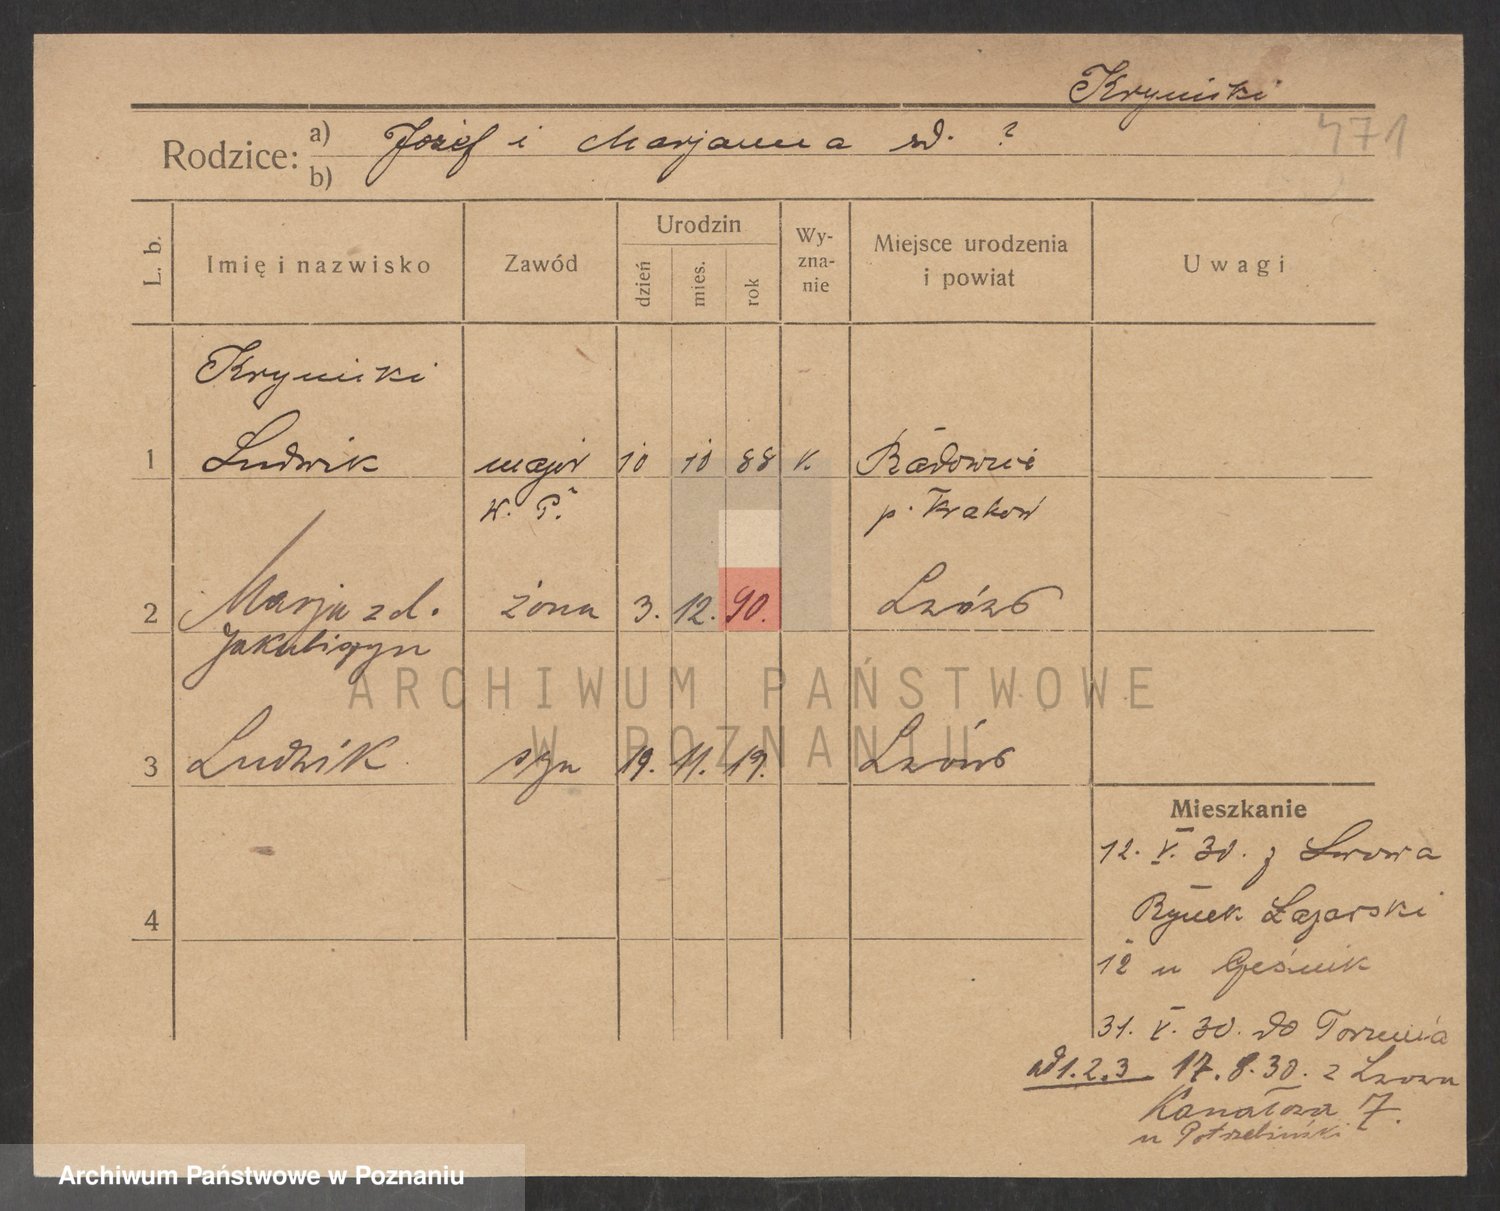 Krynicki
471
Rodzice: a) Józef i Marjanna zd. ?
b)
L. b.
Imię i nazwisko
Zawód
Urodzin
dzień
mies.
rok
Wy-
zna-
nie
Miejsce urodzenia
i powiat
Uwagi
Krynicki
1 Ludwik major 10 10 88 k.
W. P.
p. Kraków
2 Marja z d. żona 3. 12. 90. Lwów
3 Ludwik syn 19. 11. 19. Lwów
4
Mieszkanie
12. V. 30. z Lwowa
Rynek Łazarski
12 u
31. V. 30. do Torunia
ad 1.2.3 17.8.30. z Lwowa
Kanałowa 7.
u Potrzebiński
ARCHIWUM PAŃSTWOWE
W POZNANIU
Archiwum Państwowe w Poznaniu